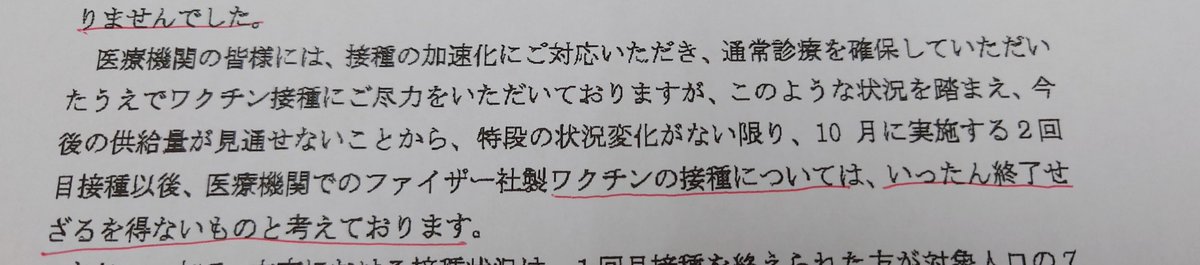 りませんでした。
医療機関の皆様には、接種の加速化にご対応いただき、通常診療を確保していただい
たうえでワクチン接種にご尽力をいただいておりますが、このような状況を踏まえ、今
後の供給量が見通せないことから、特段の状況変化がない限り、10 月に実施する2回
目接種以後、医療機関でのファイザー社製ワクチンの接種については、いったん終了せ
ざるを得ないものと考えております。
における接種状況は、1回目接種を終えられた方が対象人口の7